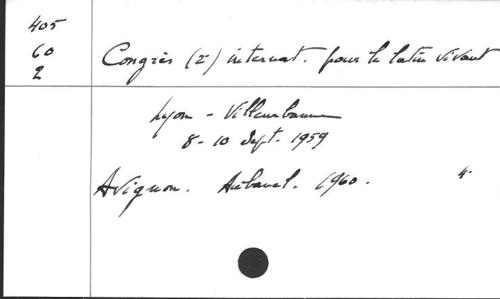 405
60
2
Congrès (2e) internat. pour le latin vivant
Lyon - Villeurbanne
8-10 Sept. 1959
Avignon. Aubanel. 1960. 4°